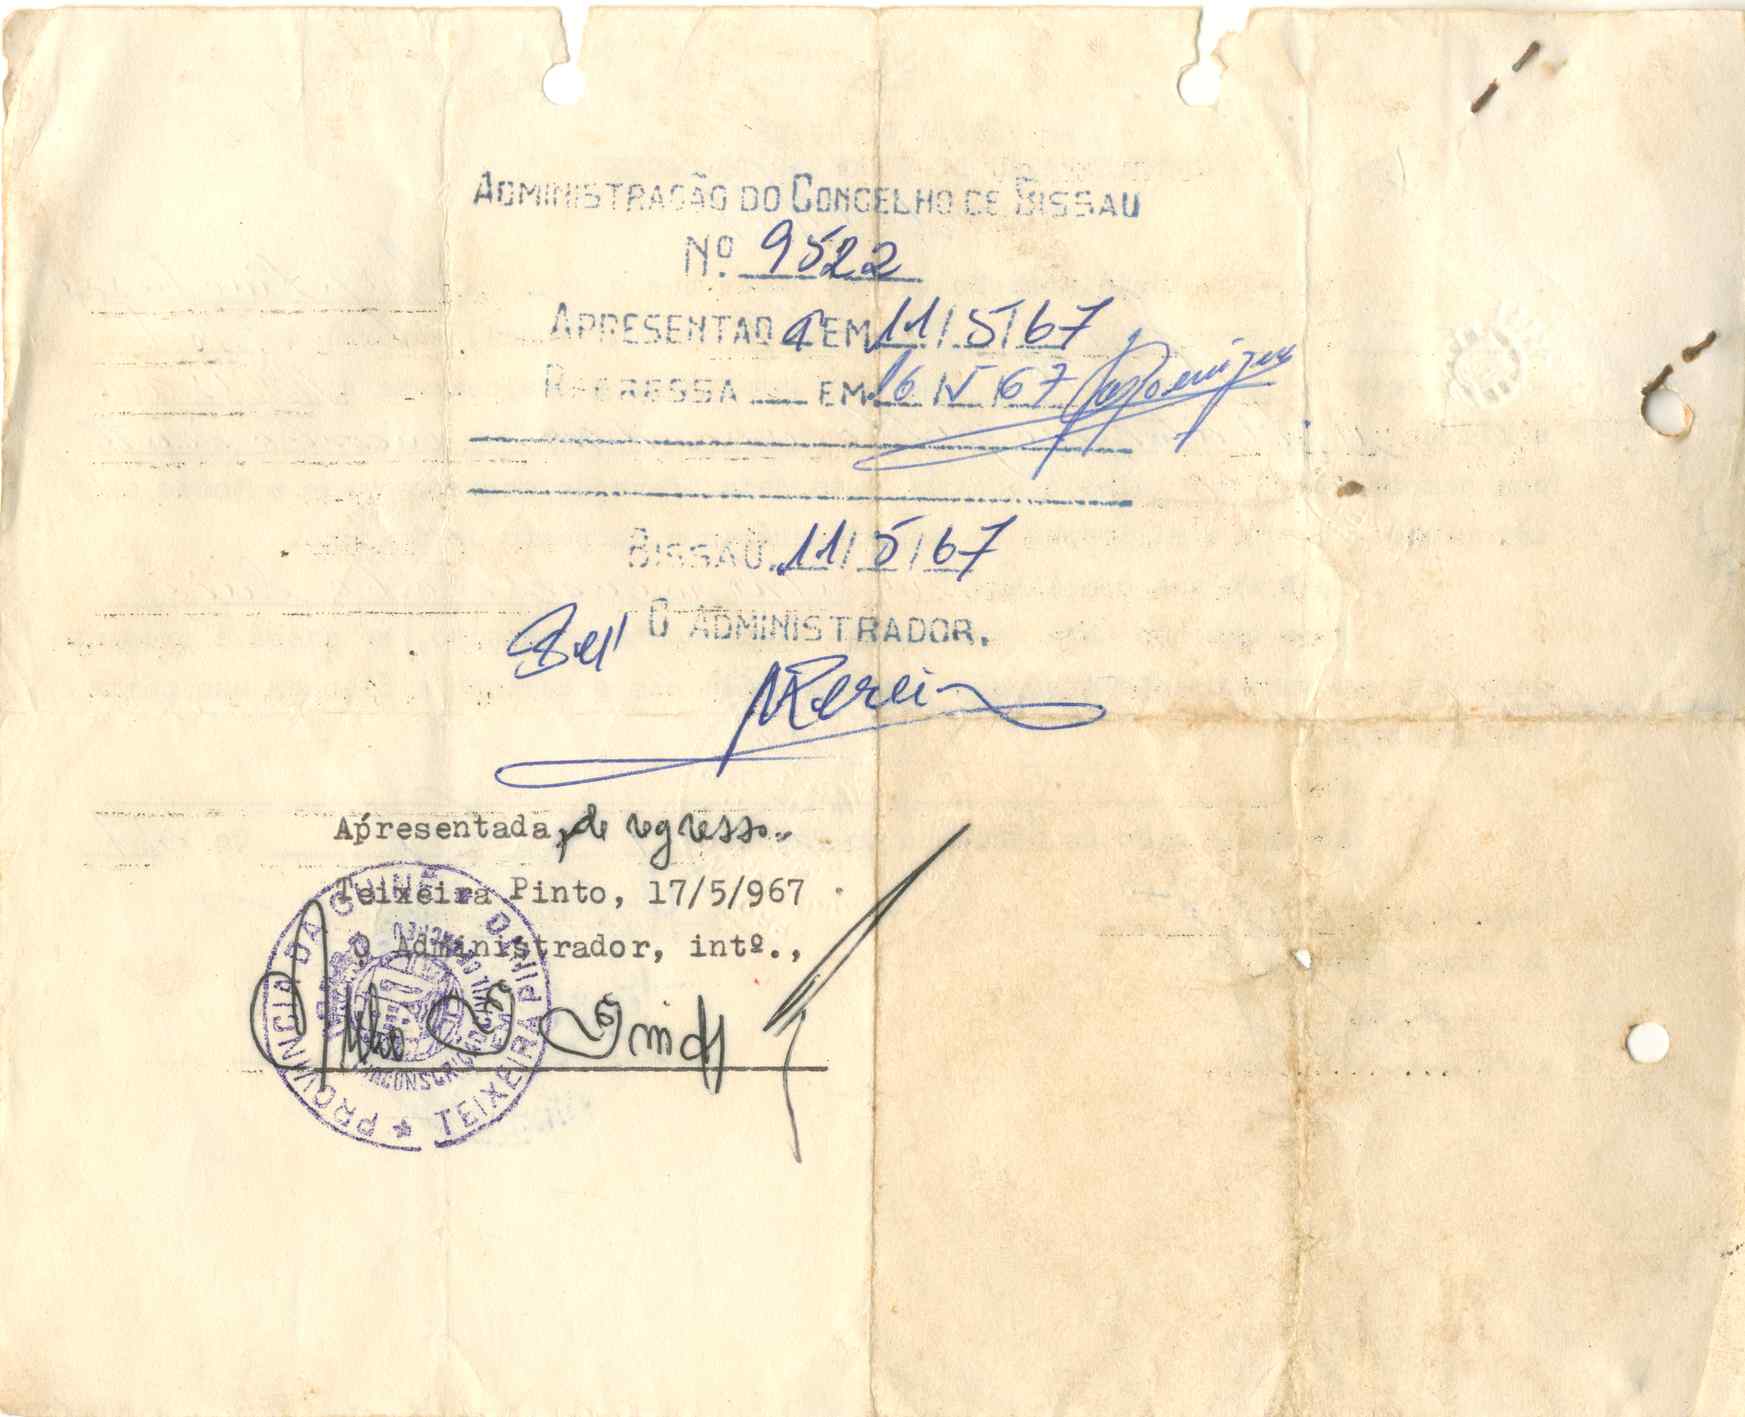 ADMINISTRAÇÃO DO CONCELHO DE BISSAU
Nº. 9522
APRESENTADA EM 11/5/67
REGRESSA EM 16/V/67
BISSAU, 11/5/67
O ADMINISTRADOR,
Apresentada, de regresso.
Teixeira Pinto, 17/5/967
O Administrador, intº.,
PROVINCIA DA GUINÉ
TEIXEIRA PINTO